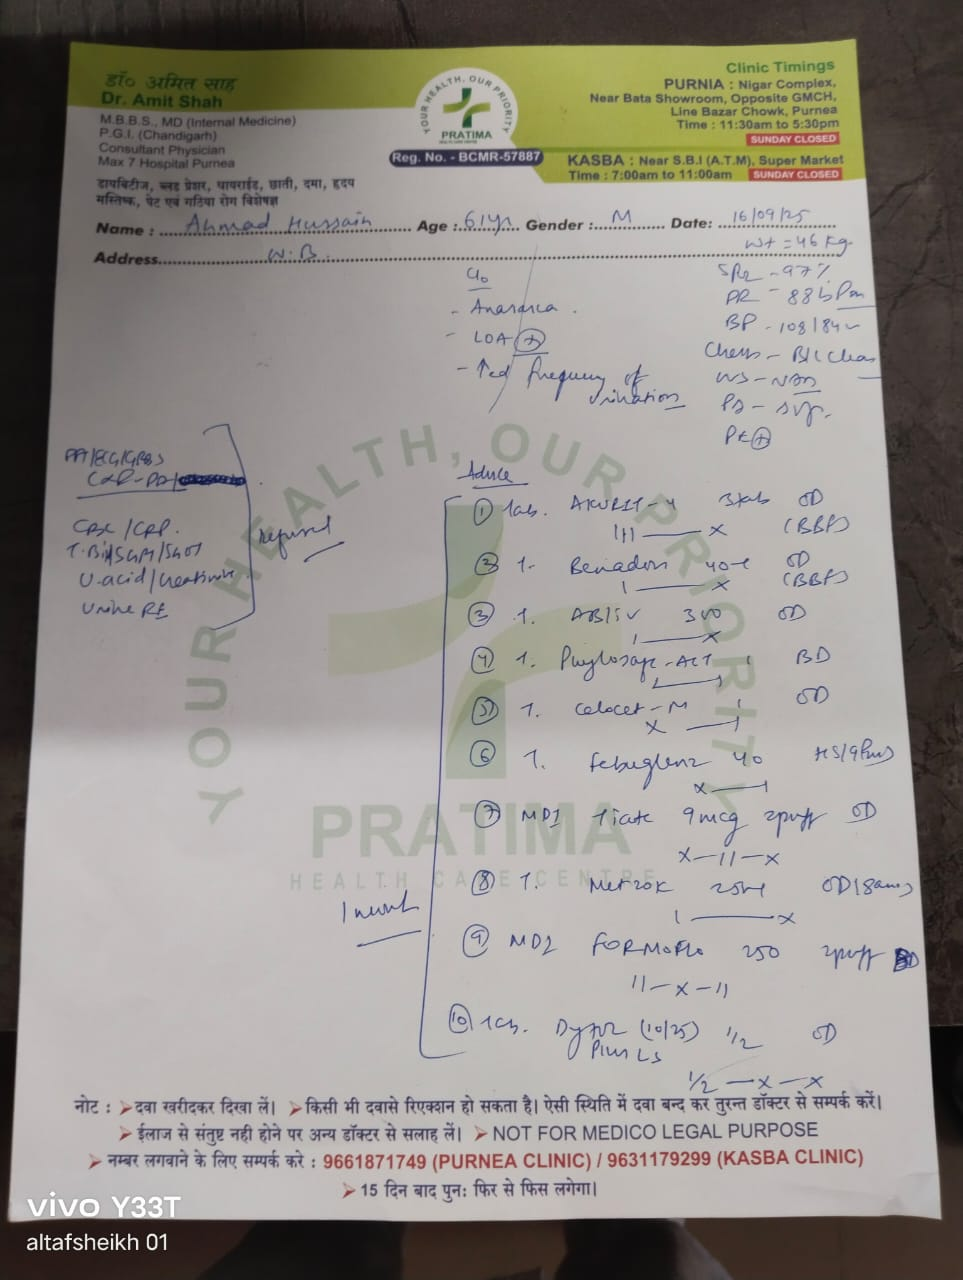 डॉ० अमित साह
Dr. Amit Shah
M.B.B.S., MD (Internal Medicine)
P.G.I. (Chandigarh)
Consultant Physician
Max 7 Hospital Purnea
डायबिटीज, ब्लड प्रेशर, थायराईड, छाती, दमा, हृदय
मस्तिष्क, पेट एवं गठिया रोग विशेषज्ञ
YOUR HEALTH, OUR PRIORITY
PRATIMA
HEALTH CARE CENTRE
Reg. No. - BCMR-57887
Clinic Timings
PURNIA : Nigar Complex,
Near Bata Showroom, Opposite GMCH,
Line Bazar Chowk, Purnea
Time : 11:30am to 5:30pm
SUNDAY CLOSED
KASBA : Near S.B.I (A.T.M), Super Market
Time : 7:00am to 11:00am SUNDAY CLOSED
Name : Ahmad Hussain Age : 61yr Gender : M Date: 16/09/25
Address W.B.
Wt = 46 kg
97%
PR - 88 bpm
BP - 108/84
c/o
- Anasarca
- LOA (+)
- frequency of
urination
CBC / CRP
U. acid / Creatinine
Urine RE
refused
Advice
① Tab. AKURIT-4 3 tab OD
(BBF)
III — x
② T. Benadon 40 OD
(BBF)
I — x
③ T. 300 OD
I — x
④ T. BD
⑤ T. OD
x — I
⑥ T. 40 HS/9pm
x — I
⑦ MDI Tiate 9mcg 2puff OD
x — II — x
⑧ T. OD/8am
I — x
⑨ MDI FORMOFLO 250 2puff BD
II — x — II
⑩ Tab. Dytor (10/25) 1/2 OD
Plus LS
1/2 — x — x
1 month
YOUR HEALTH, OUR PRIORITY
PRATIMA
HEALTH CARE CENTRE
नोट : ➤ दवा खरीदकर दिखा लें। ➤ किसी भी दवासे रिएक्शन हो सकता है। ऐसी स्थिति में दवा बन्द कर तुरन्त डॉक्टर से सम्पर्क करें।
➤ ईलाज से संतुष्ट नही होने पर अन्य डॉक्टर से सलाह लें। ➤ NOT FOR MEDICO LEGAL PURPOSE
➤ नम्बर लगवाने के लिए सम्पर्क करे : 9661871749 (PURNEA CLINIC) / 9631179299 (KASBA CLINIC)
➤ 15 दिन बाद पुनः फिर से फिस लगेगा।
vivo Y33T
altafsheikh 01